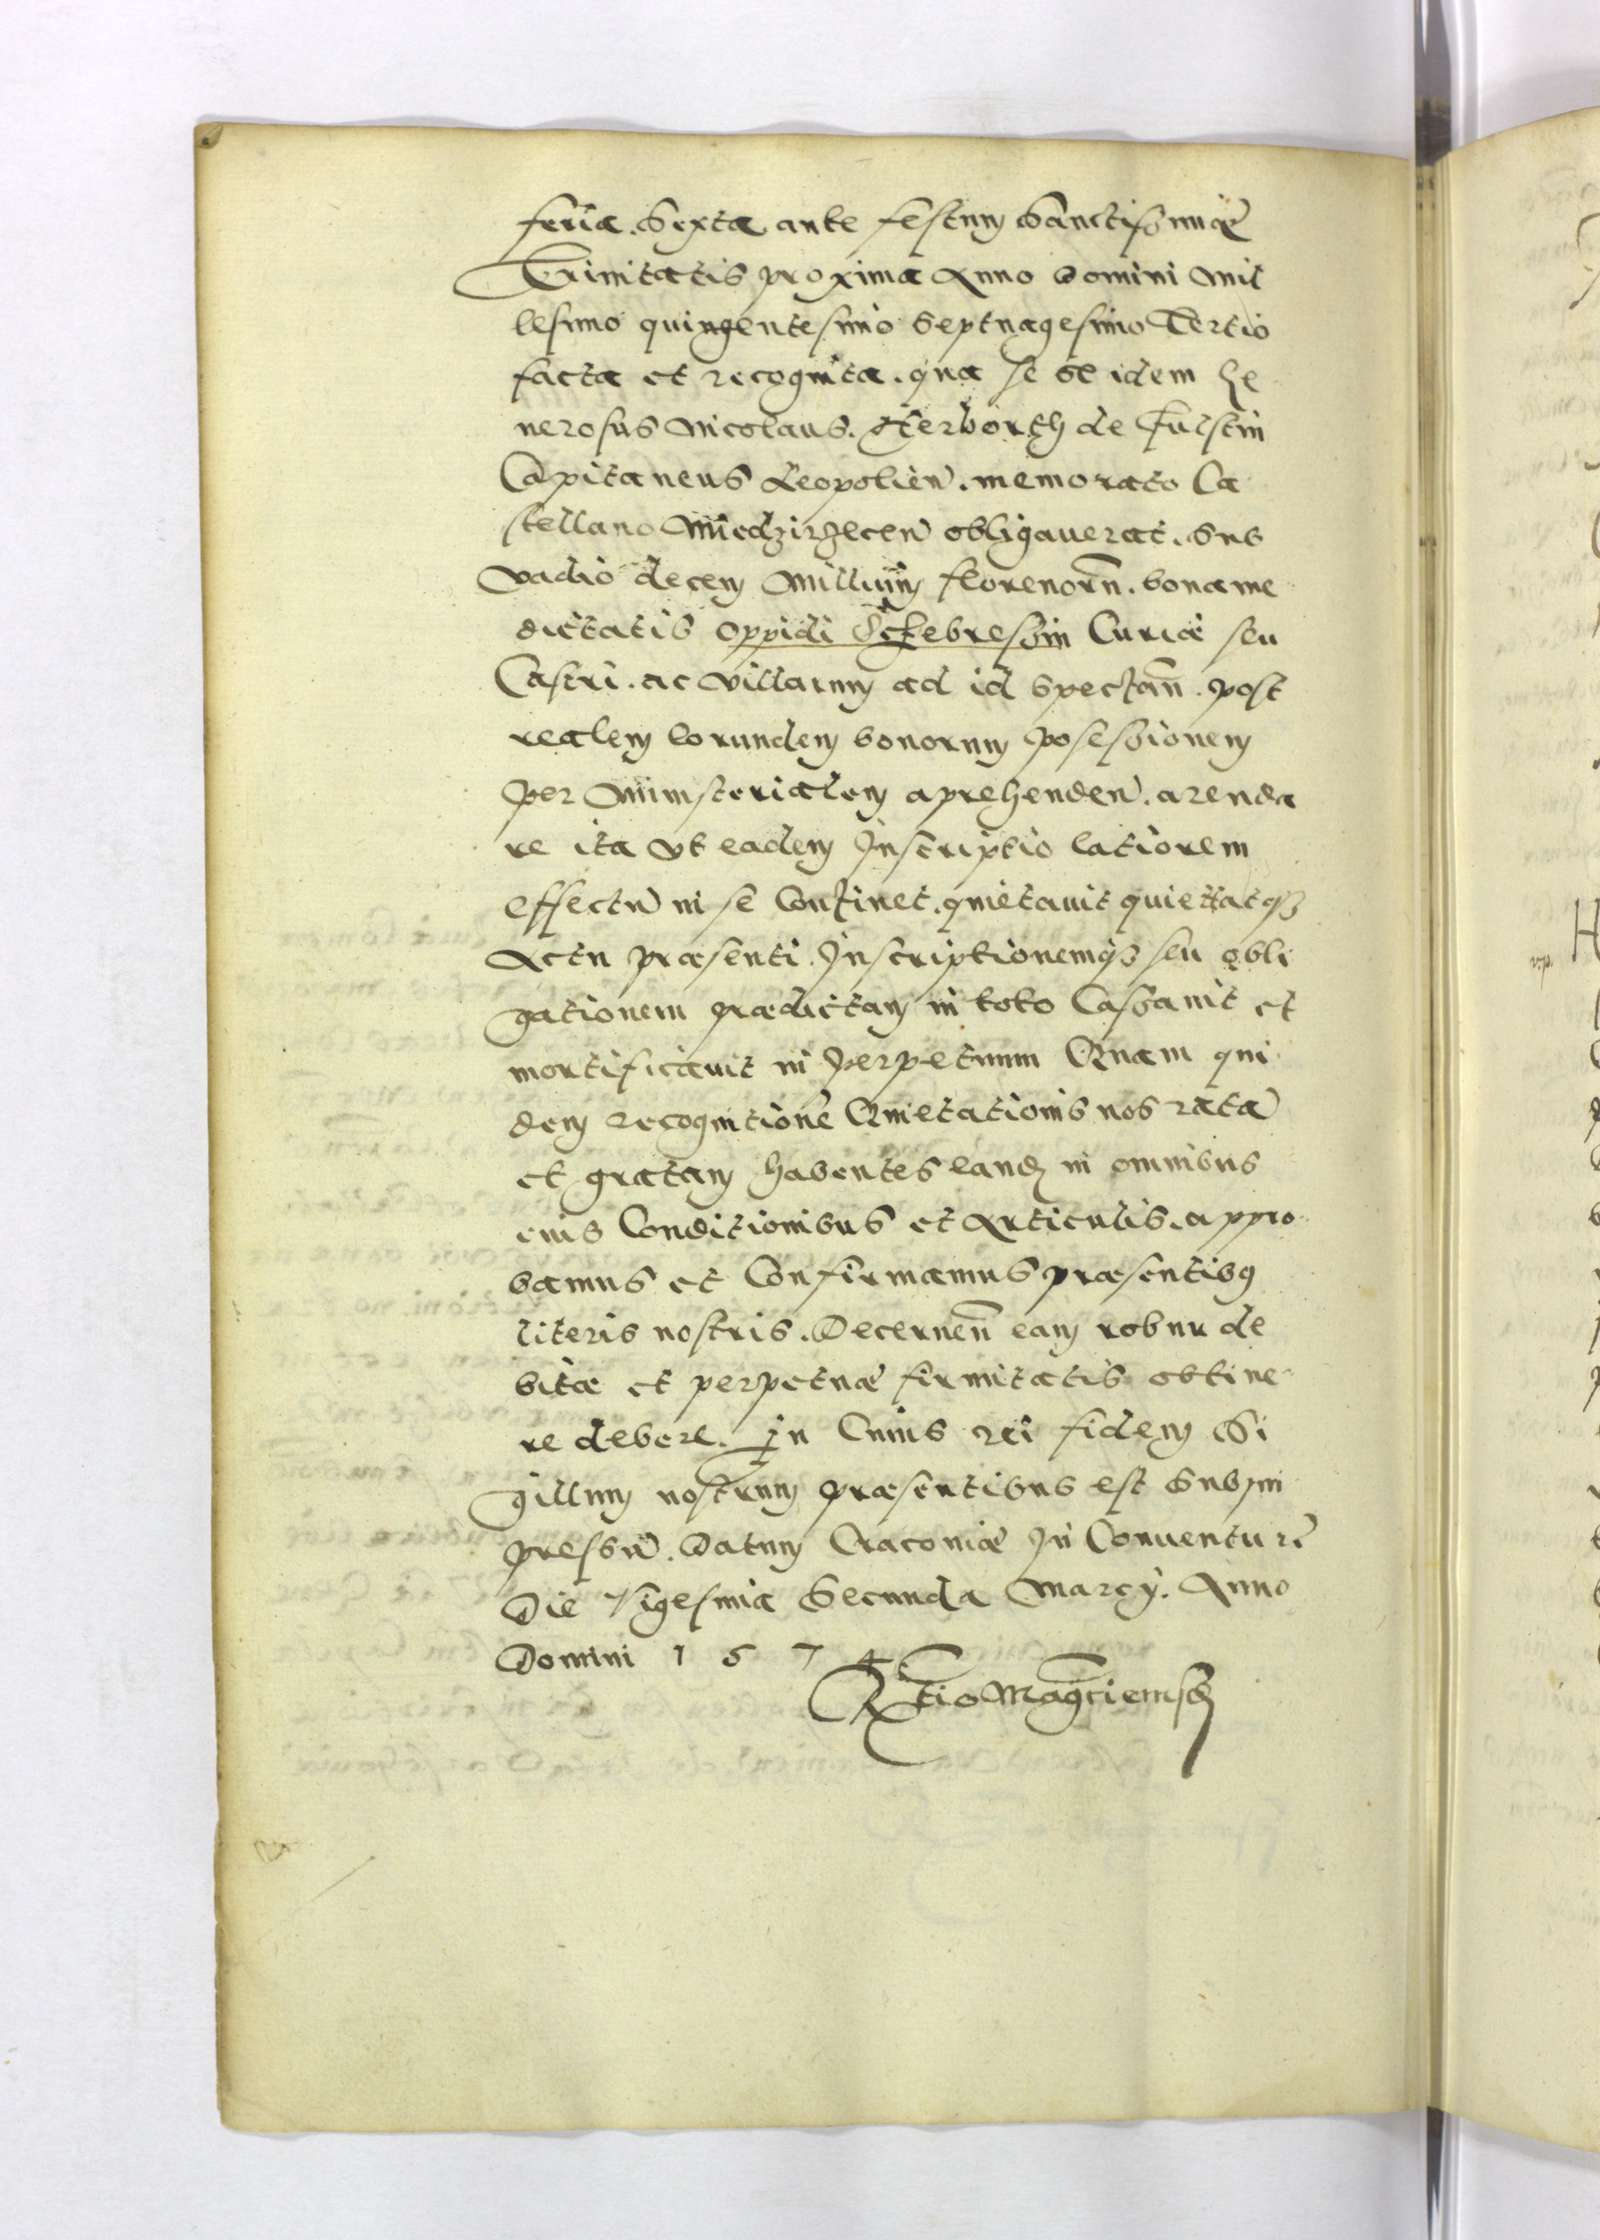 feria. Sexta ante festum Sanctissimæ
Trinitatis proxima Anno domini Mil
lesimo quingentesimo Septuagesimo Tertio
facta et recognita. qua se se idem Ge
nerosus Nicolaus. Herborth de Fulstin
Capitaneus Leopolien̄. memorato Ca
stellano Miedzirzecen̄ obligauerat. Sub
vadio decem Millium florenorū. bona me
dietatis oppidi Sczebressin Curiæ seu
Castri. ac villarum ad id Spectan̄. post
realem eorundem bonorum possessionem
per Ministerialem aprehenden̄. arenda
re ita vt eadem Inscriptio latiorem
effectū in se Continet. quietauit quiettatqȝ
Actu præsenti. Inscriptionemqȝ seu obli
gationem prædictam in toto Cassauit et
mortificauit in perpetuum Quam qui
dem recognitionē Quietationis nos ratā
et gratam habentes eand in omnibus
eius Conditionibus et Articulis. appro
bamus et Confirmamus præsentibꝰ
literis nostris. Decernen̄ eam robur de
bitæ et perpetuæ firmitatis obtine
re debere. In Cuius rei fidem Si
gillum nostrum præsentibus est Subim
pressū. Datum Cracoviæ In Conuentu r̄
Die Vigesima Secunda Marcÿ. Anno
Domini 1574